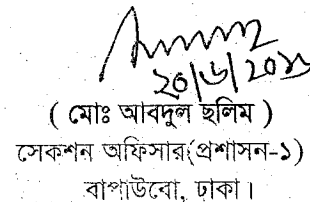 ২০/৬/২০১৬
( মোঃ আবদুল ছলিম )
সেকশন অফিসার(প্রশাসন-১)
বাপাউবো, ঢাকা।